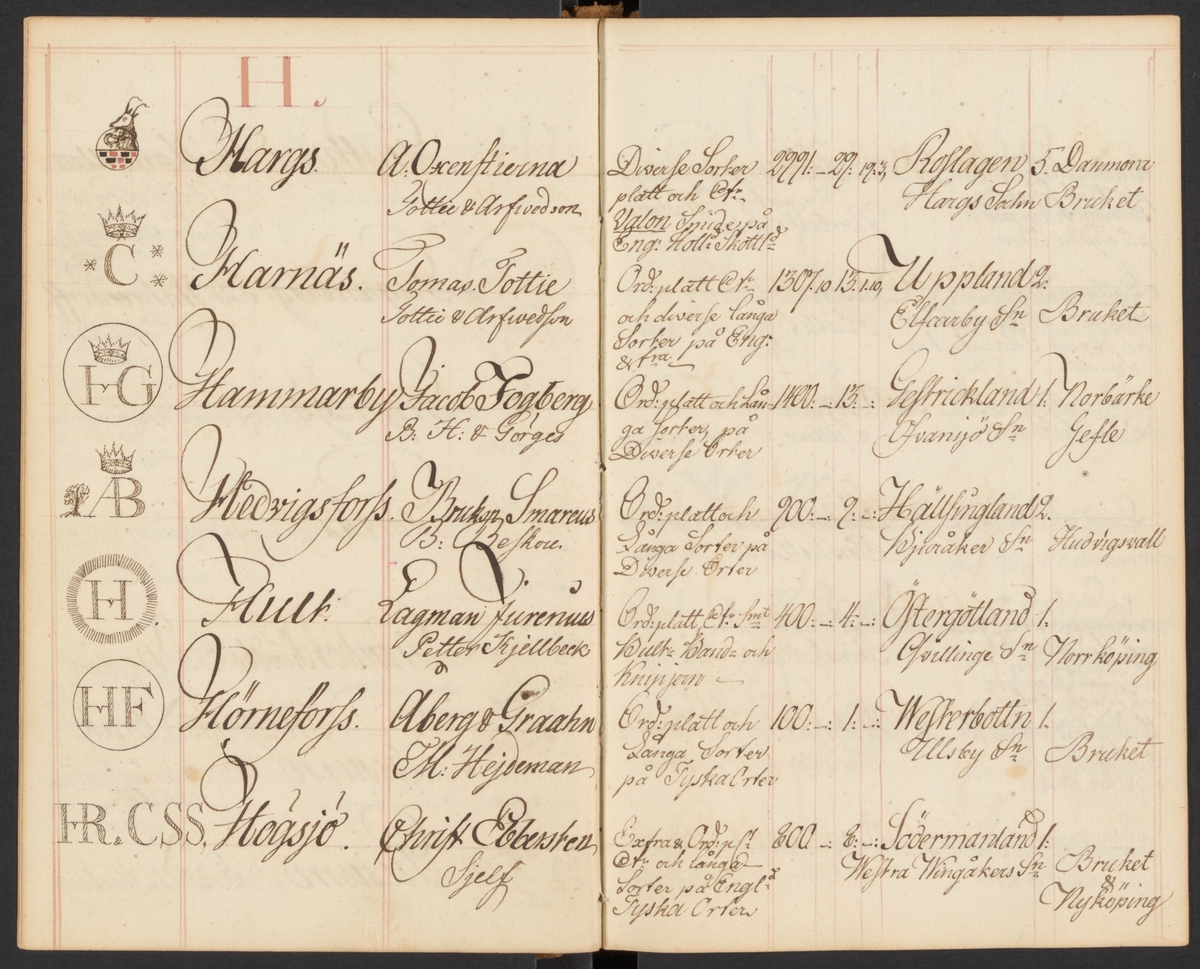 H.
Hargs. A: Oxenstierna Diverse Sorter 2991: — 29: 19:3, Roslagen 5. Danmora
Tottie & Arfwedson platt och Etr. Hargs Sochn Bruket
Valon Smide på
Eng: Holl: Skottld
C
Harnäs. Tomas Tottie Ord: platt Etr 1307. 10 13: 1.10, Uppland 2:
Tottie & Arfwedson och diverse långa Elfcarby Sn Bruket
Sorter på Eng:
& fra.
HG
Hammarby Jacob Fogberg Ord: platt och Lån- 1400: — 13: —: Gestrickland 1: Norbärke
B: H: & Görges ga Sorter, på Ofvansjö Sn Gefle
Diverse Orter
AB
Hedvigsforss. Brukn Smareus Ord: platt och 900: —: 9: —: Hällsingland 2.
B: Beskow. Långa Sorter på Bjuråker Sn Hudvigsvall
Diverse Orter
H.
Hult: Lagman Jurenius Ord: platt, Etr Smt 400: — 4: —: Östergötland 1.
Petter Kjellbeck Bult= Band= och Qvillinge Sn Norrköping
Knipjern —
HF
Hörneforss. Aberg & Graahn Ord: platt och 100: —: 1: —: Westerbottn 1.
M: Hejdeman Långa Sorter Ullsby Sn Bruket
på Tyska Orter
HR. CSS. Högsjö. Christ Ebersten Extra & Ord: pl: 800 — 8: —: Södermanland 1:
Sjelf Etr och långa Westra Wingåkers Sn Bruket
Sorter på Engl: &
Tyska Orter Nyköping